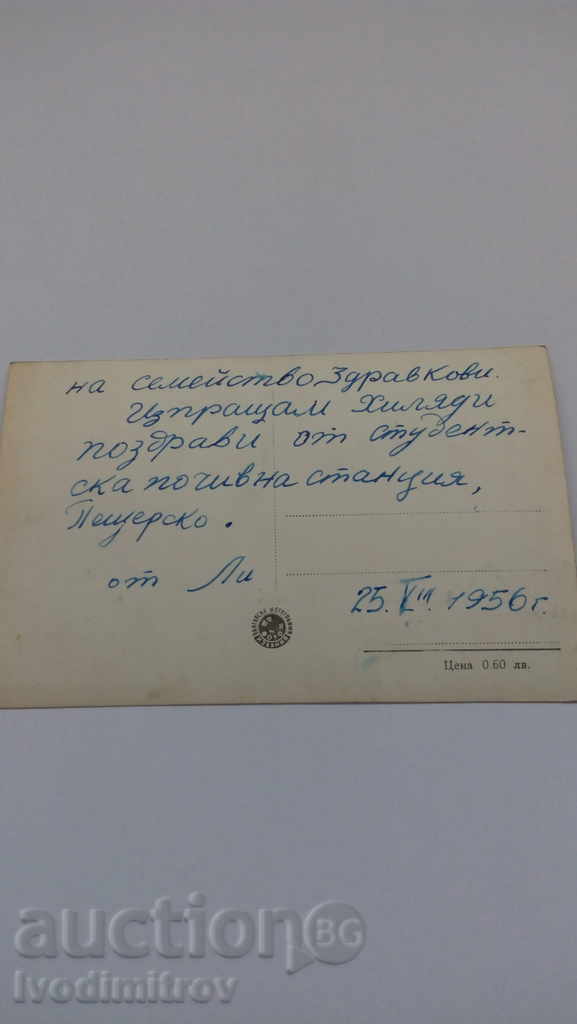 на семейство Здравкови.
Изпращам хиляди
поздрави от студент-
ска почивна станция,
Пещерско.
от Ли
25. VIII. 1956 г.
Цена 0.60 лв.
auctionBG
Ivodimitrov